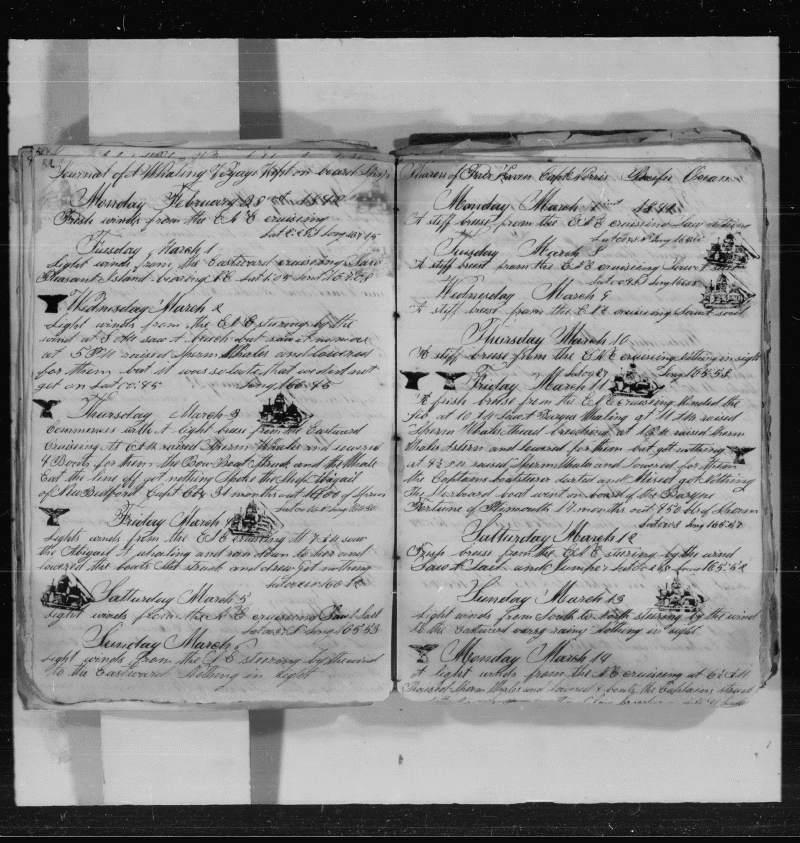 Journal of A Whaling Voyage Kept on board Ship
Monday February 28 1842
Fresh winds from the E N E cruising
Lat 0-28 S Long 167-15
Tuesday March 1
Light winds from the Eastward cruising Saw
Pleasant Island bearing N E Lat 1.05 Long 167.08
Wednesday March 2
Light winds from the E N E sturing by the
wind at 5 PM saw A breach but saw it no more
at 5 PM raised Sperm Whales and lowered
for them but it was so late that we did not
get on Lat 00.45 Long 166.45
Thursday March 3
Commences with A light breeze from the Eastward
Cruising At 6 AM raised Sperm Whales and lowered
4 Boats for them the Bow Boat Struck and the Whale
Cut the line off got nothing Spoke the Ship Abigail
of New Bedford Capt 31 months out 1400 of Sperm
Friday March 4
Lights winds from the E N E cruising At 7 AM saw
the Abigail A whaling and ran down to her and
lowered the boats She struck and drew got nothing
Satturday March 5
Light winds from the N E cruising Saw A Sail
Lat 00 37 S Long 165 53
Sunday March 6
Light winds from the N E sturing by the wind
to the Eastward Nothing in sight
Sharon of Fair Haven Capt Norris Pacific Ocean
Monday March 7 1842
A stiff breese from the E N E cruising Saw nothing
Tuesday March 8
A stiff breese from the E N E cruising Saw A sail
Wednesday March 9
A stiff breese from the E N E cruising Saw A sail
Thursday March 10
A stiff breese from the E N E cruising nothing in sight
Lat 0 27 Long 165.58
Friday March 11
A fresh breese from the E N E cruising
at 10 AM Saw A Barque Whaling at 11 AM raised
Sperm Whales Ahead breaching at 1 PM raised Sperm
Whales Astern and lowered for them but got nothing
at 4 30 PM raised Sperm Whales and lowered for them
the Captains boatsteerer darted and Missed got Nothing
The Larboard boat went on board of the Barque
Fortune of Plymouth 17 months out 450 bbl of Sperm
Long 165-57
Satturday March 12
Fresh breese from the E N E sturing by the wind
Saw A Sail and Jumper Long 165.52
Sunday March 13
Light winds from South to North sturing by the wind
to the Eastward verry rainy Nothing in sight
Monday March 14
A light winds from the N E cruising at 6 AM
Raised Sperm Whales and lowered 4 boats the Captains struck